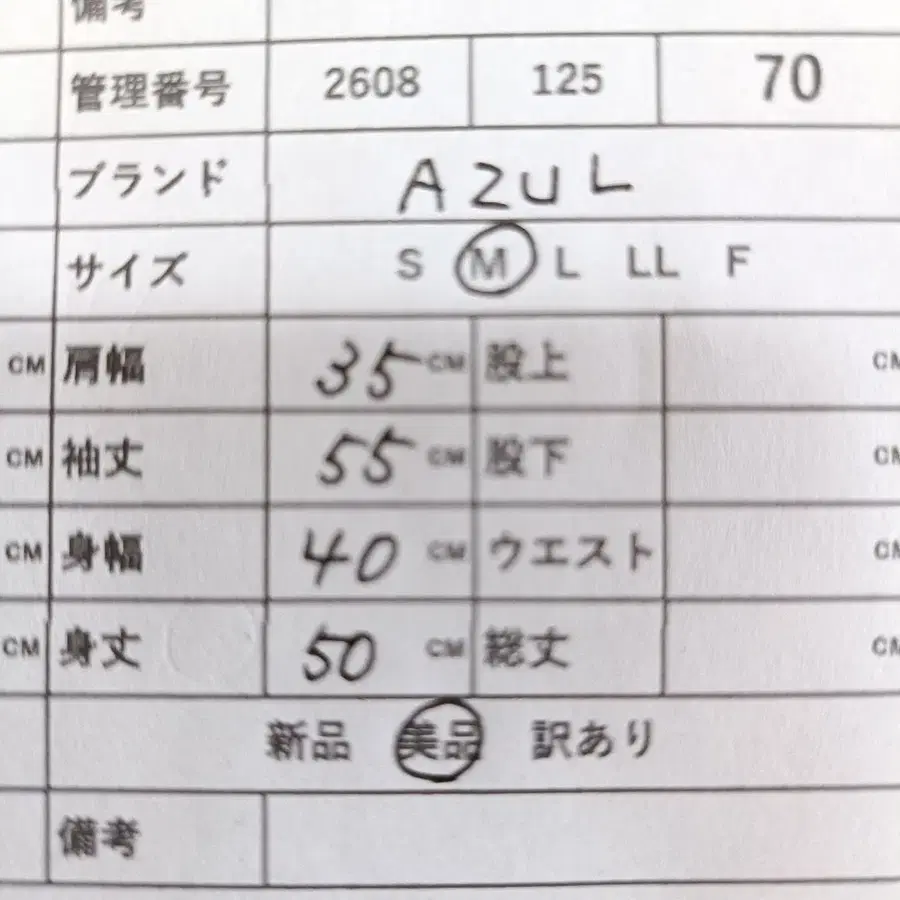 備考
管理番号 2608 125 70
ブランド AZUL
サイズ S M L LL F
CM 肩幅 35 CM 股上 CM
CM 袖丈 55 CM 股下 CM
CM 身幅 40 CM ウエスト CM
CM 身丈 50 CM 総丈 CM
新品 美品 訳あり
備考